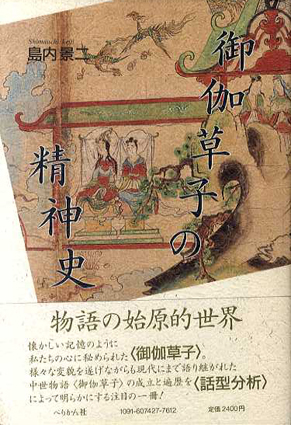 Shimauchi Keiji
島内景二
御伽草子の
精神史
物語の始原的世界
懐かしい記憶のように
私たちの心に秘められた〈御伽草子〉。
様々な変貌を遂げながらも現代にまで語り継がれた
中世物語〈御伽草子〉の成立と遍歴を〈話型分析〉
によって明らかにする注目の一冊!
ぺりかん社
1091-607427-7612
定価2400円